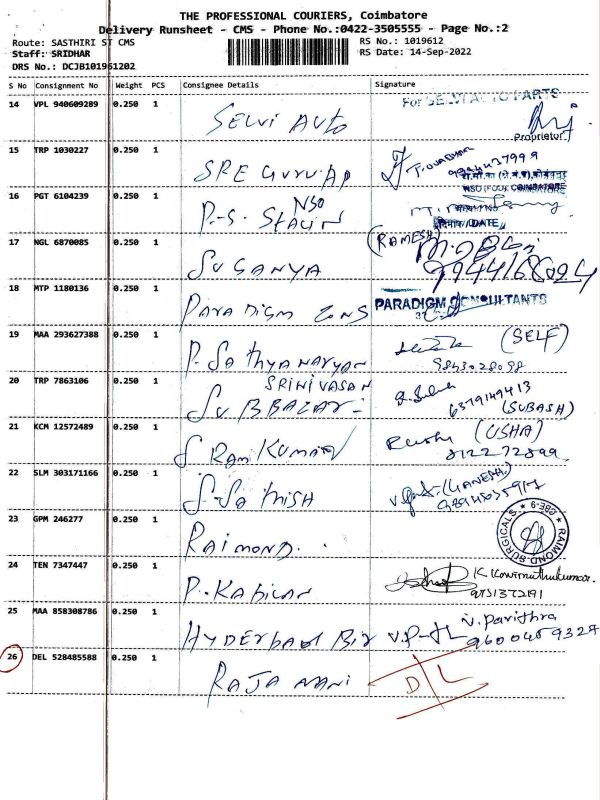 THE PROFESSIONAL COURIERS, Coimbatore
Delivery Runsheet - CMS - Phone No.:0422-3505555 - Page No.:2
Route: SASTHIRI ST CMS RS No.: 1019612
Staff: SRIDHAR RS Date: 14-Sep-2022
DRS No.: DCJB101961202
S No Consignment No Weight PCS Consignee Details Signature
For SELVI AUTO PARTS
14 VPL 940609289 0.250 1 SELVI AUTO
Proprietor.
15 TRP 1030227 0.250 1 SRE GURU AP
16 PGT 6104239 0.250 1 P.S. STALIN NSO
DATE
17 NGL 6870085 0.250 1 SUGANYA (RAMESH)
18 MTP 1180136 0.250 1 PARADIGM CONS PARADIGM CONSULTANTS
19 MAA 293627388 0.250 1 P. SATHYANARYAN (SELF)
9843028098
20 TRP 7863106 0.250 1 SRINIVASAN
6379149413
(SUBASH)
21 KCM 12572489 0.250 1 S RAM KUMAR (USHA)
812272899
22 SLM 303171166 0.250 1 S. SATHISH (GANESH)
23 GPM 246277 0.250 1 RAIMOND. RAIMOND SURGICALS
24 TEN 7347447 0.250 1 P. KABILAN K Kavimuthukumar.
25 MAA 858308786 0.250 1 HYDERBAD BIR V. Pavithra
9600459329
26 DEL 528485588 0.250 1 RAJA MANI D L